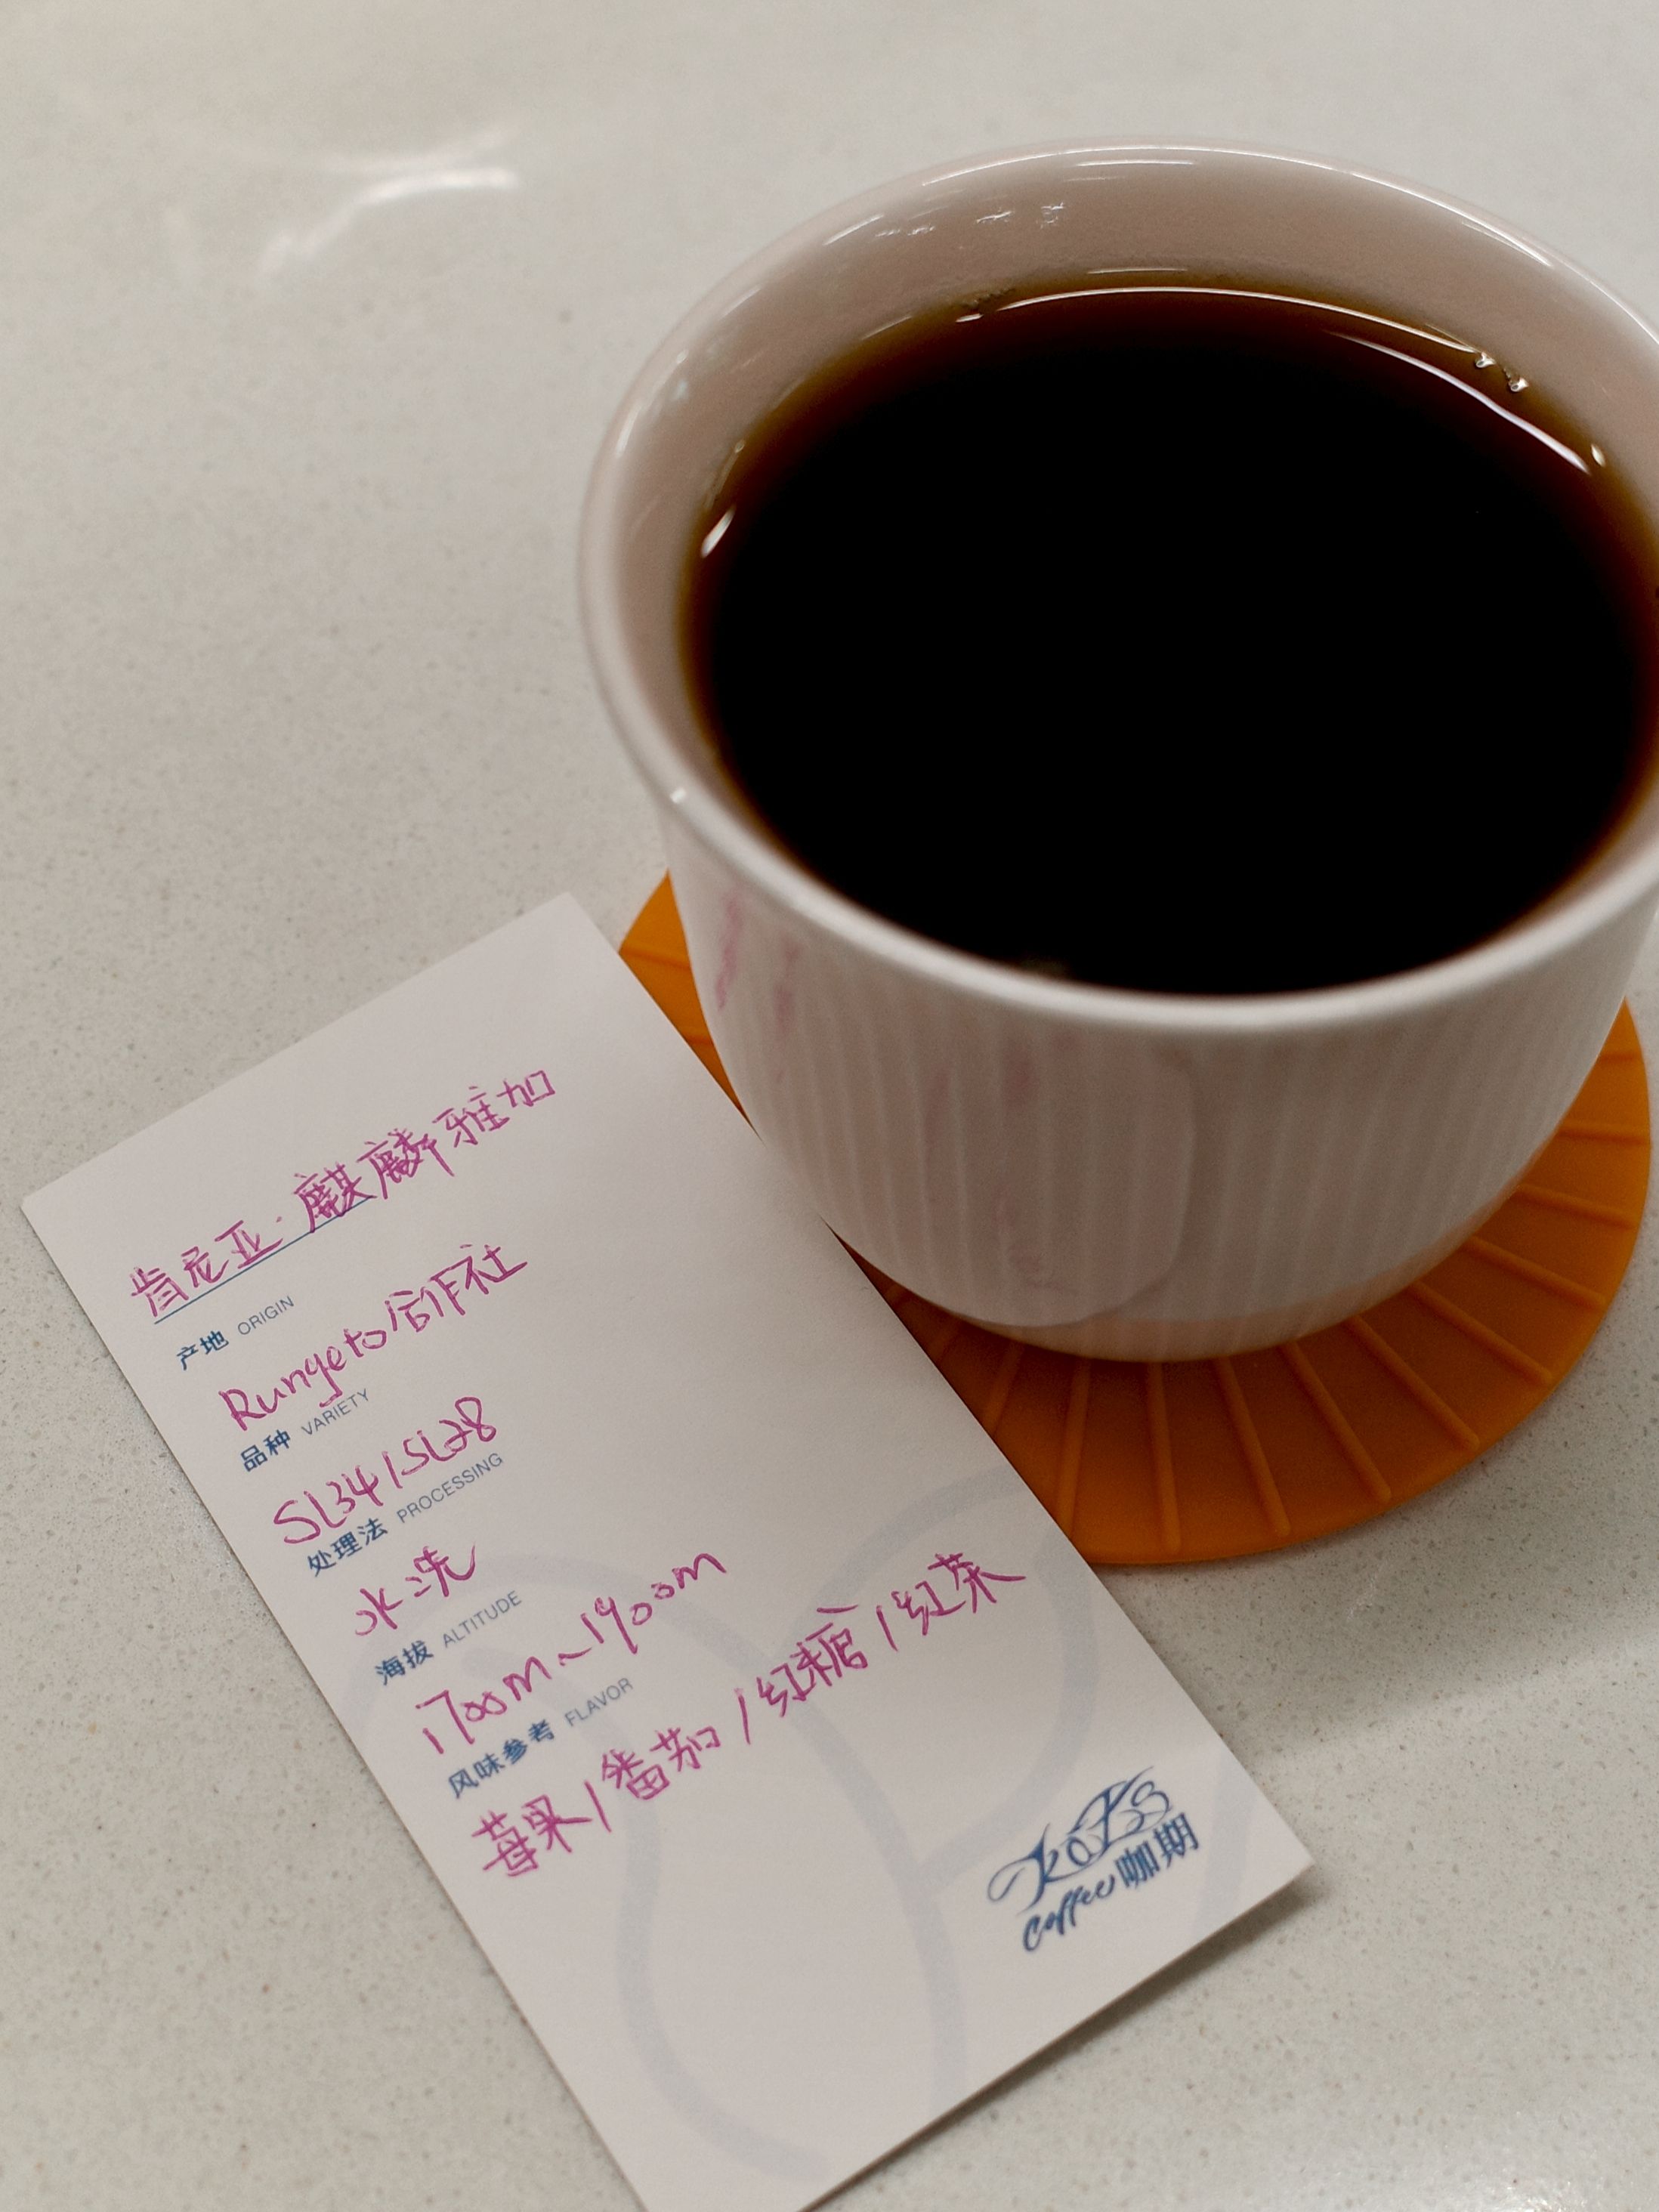 肯尼亚·麒麟雅加
产地 ORIGIN
Rungeto合作社
品种 VARIETY
SL34/SL28
处理法 PROCESSING
水洗
海拔 ALTITUDE
1700m~1900m
风味参考 FLAVOR
莓果/番茄/红糖/红茶
Kats
Coffee 咖期